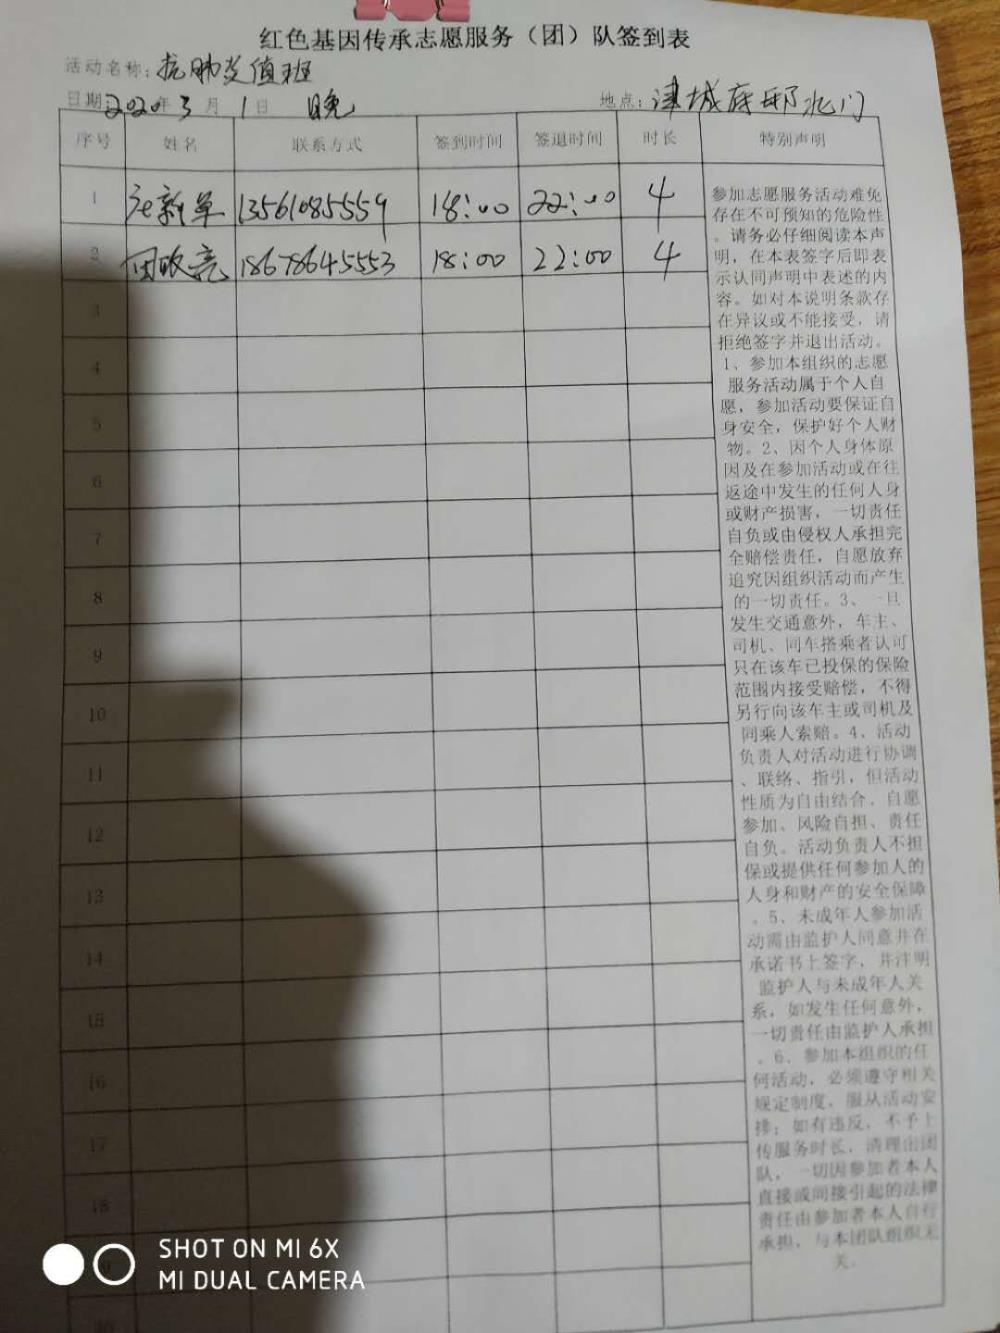 红色基因传承志愿服务（团）队签到表
活动名称：抗肺炎值班
日期2020年3月1日 晚 地点：津城府邸北门
序号 姓名 联系方式 签到时间 签退时间 时长 特别声明
1 新军 13561085559 18:00 22:00 4
2 18678645553 18:00 22:00 4
3
4
5
6
7
8
9
10
11
12
13
14
15
16
17
18
19
20
参加志愿服务活动难免
存在不可预知的危险性
。请务必仔细阅读本声
明，在本表签字后即表
示认同声明中表述的内
容。如对本说明条款存
在异议或不能接受，请
拒绝签字并退出活动。
1、参加本组织的志愿
服务活动属于个人自
愿，参加活动要保证自
身安全，保护好个人财
物。2、因个人身体原
因及在参加活动或在往
返途中发生的任何人身
或财产损害，一切责任
自负或由侵权人承担完
全赔偿责任，自愿放弃
追究因组织活动而产生
的一切责任。3、一旦
发生交通意外，车主、
司机、同车搭乘者认可
只在该车已投保的保险
范围内接受赔偿，不得
另行向该车主或司机及
同乘人索赔。4、活动
负责人对活动进行协调
、联络、指引，但活动
性质为自由结合，自愿
参加、风险自担、责任
自负。活动负责人不担
保或提供任何参加人的
人身和财产的安全保障
。5、未成年人参加活
动需由监护人同意并在
承诺书上签字，并注明
监护人与未成年人关
系，如发生任何意外，
一切责任由监护人承担
。6、参加本组织的任
何活动，必须遵守相关
规定制度，服从活动安
排；如有违反，不予上
传服务时长，清理出团
队，一切因参加者本人
直接或间接引起的法律
责任由参加者本人自行
承担，与本团队组织无
关。
SHOT ON MI 6X
MI DUAL CAMERA